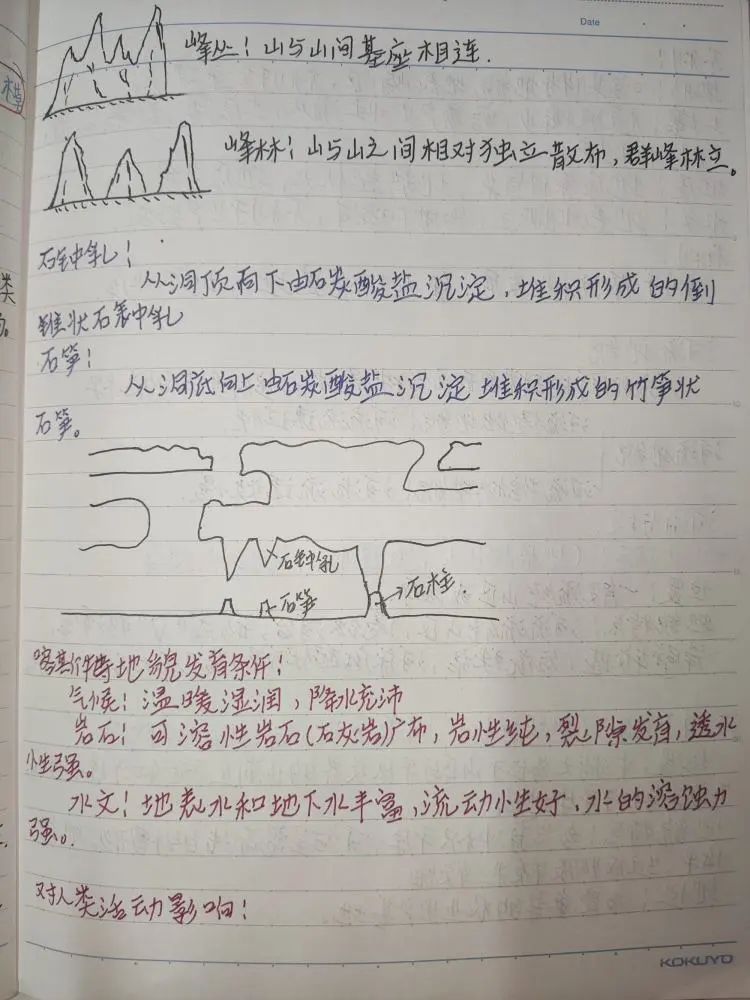 Date
峰丛：山与山间基座相连.
峰林：山与山之间相对独立散布，群峰林立。
石钟乳：
从洞顶向下由石炭酸盐沉淀，堆积形成的倒
锥状石钟乳
石笋：
从洞底向上由石炭酸盐沉淀堆积形成的竹笋状
石笋。
石钟乳
石笋
石柱.
喀斯特地貌发育条件：
气候：温暖湿润，降水充沛
岩石：可溶性岩石(石灰岩)广布，岩性纯，裂隙发育，透水
性强。
水文：地表水和地下水丰富，流动性好，水的溶蚀力
强。
对人类活动影响：
类
KOKUYO